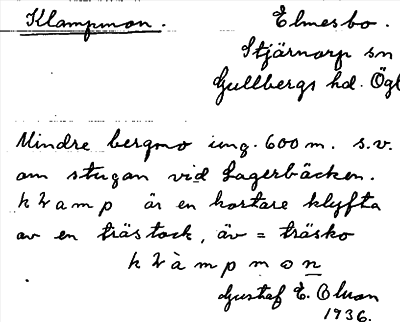 Klampmon. Elmesbo.
Stjärnorp sn
Gullbergs hd. Ögl
Mindre bergmo ung. 600 m. s.v.
om stugan vid Lagerbäcken.
klamp är en kortare klyfta
av en trästock, äv = träsko
Gustaf E. Olson
1936.